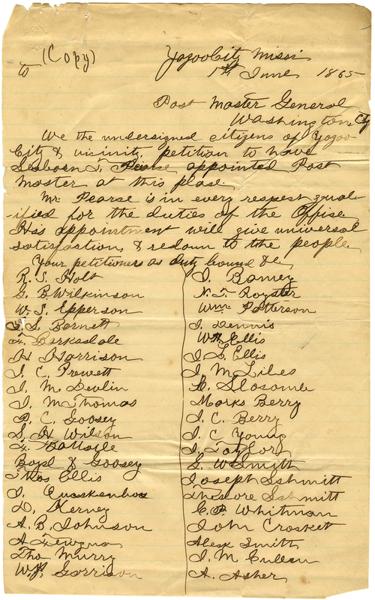 (Copy)
Yazoo City Missi
1st June 1865
To
Post Master General
Washington City
We the undersigned citizens of Yazoo
City & vicinity, petition to have
F. Pearse appointed Post
Master at this place.
Mr Pearse is in every respect qual-
-ified for the duties of the Office
His appointment will give universal
satisfaction, & redoun to the people.
Your petitioners as duty bound &c
R. S. Holt
G. B. Wilkinson
W. S. Epperson
Barnett
F. Barksdale
H. Harrison
J. C. Prewett
J. M. Devlin
J. M. Thomas
P. C. Goosey
S. H. Wilson
Boyd & Goosey
Thos Ellis
J. Quackenbos
D. Kerney
A. B. Johnson
A
Tho Murry
W. P. Gorrison
J. Barney
F. Royster
Wm Patterson
J. Dennis
W. Ellis
J. S. Ellis
J. M. Liles
D. Slocomb
Marks Berry
J. C. Berry
J. C. Young
J. Taylor
E. W. Smyth
Joseph Schmitt
Theodore Schmitt
C. B. Whitman
John Crosket
Alex Smith
J. M. Culeen
A. Asher